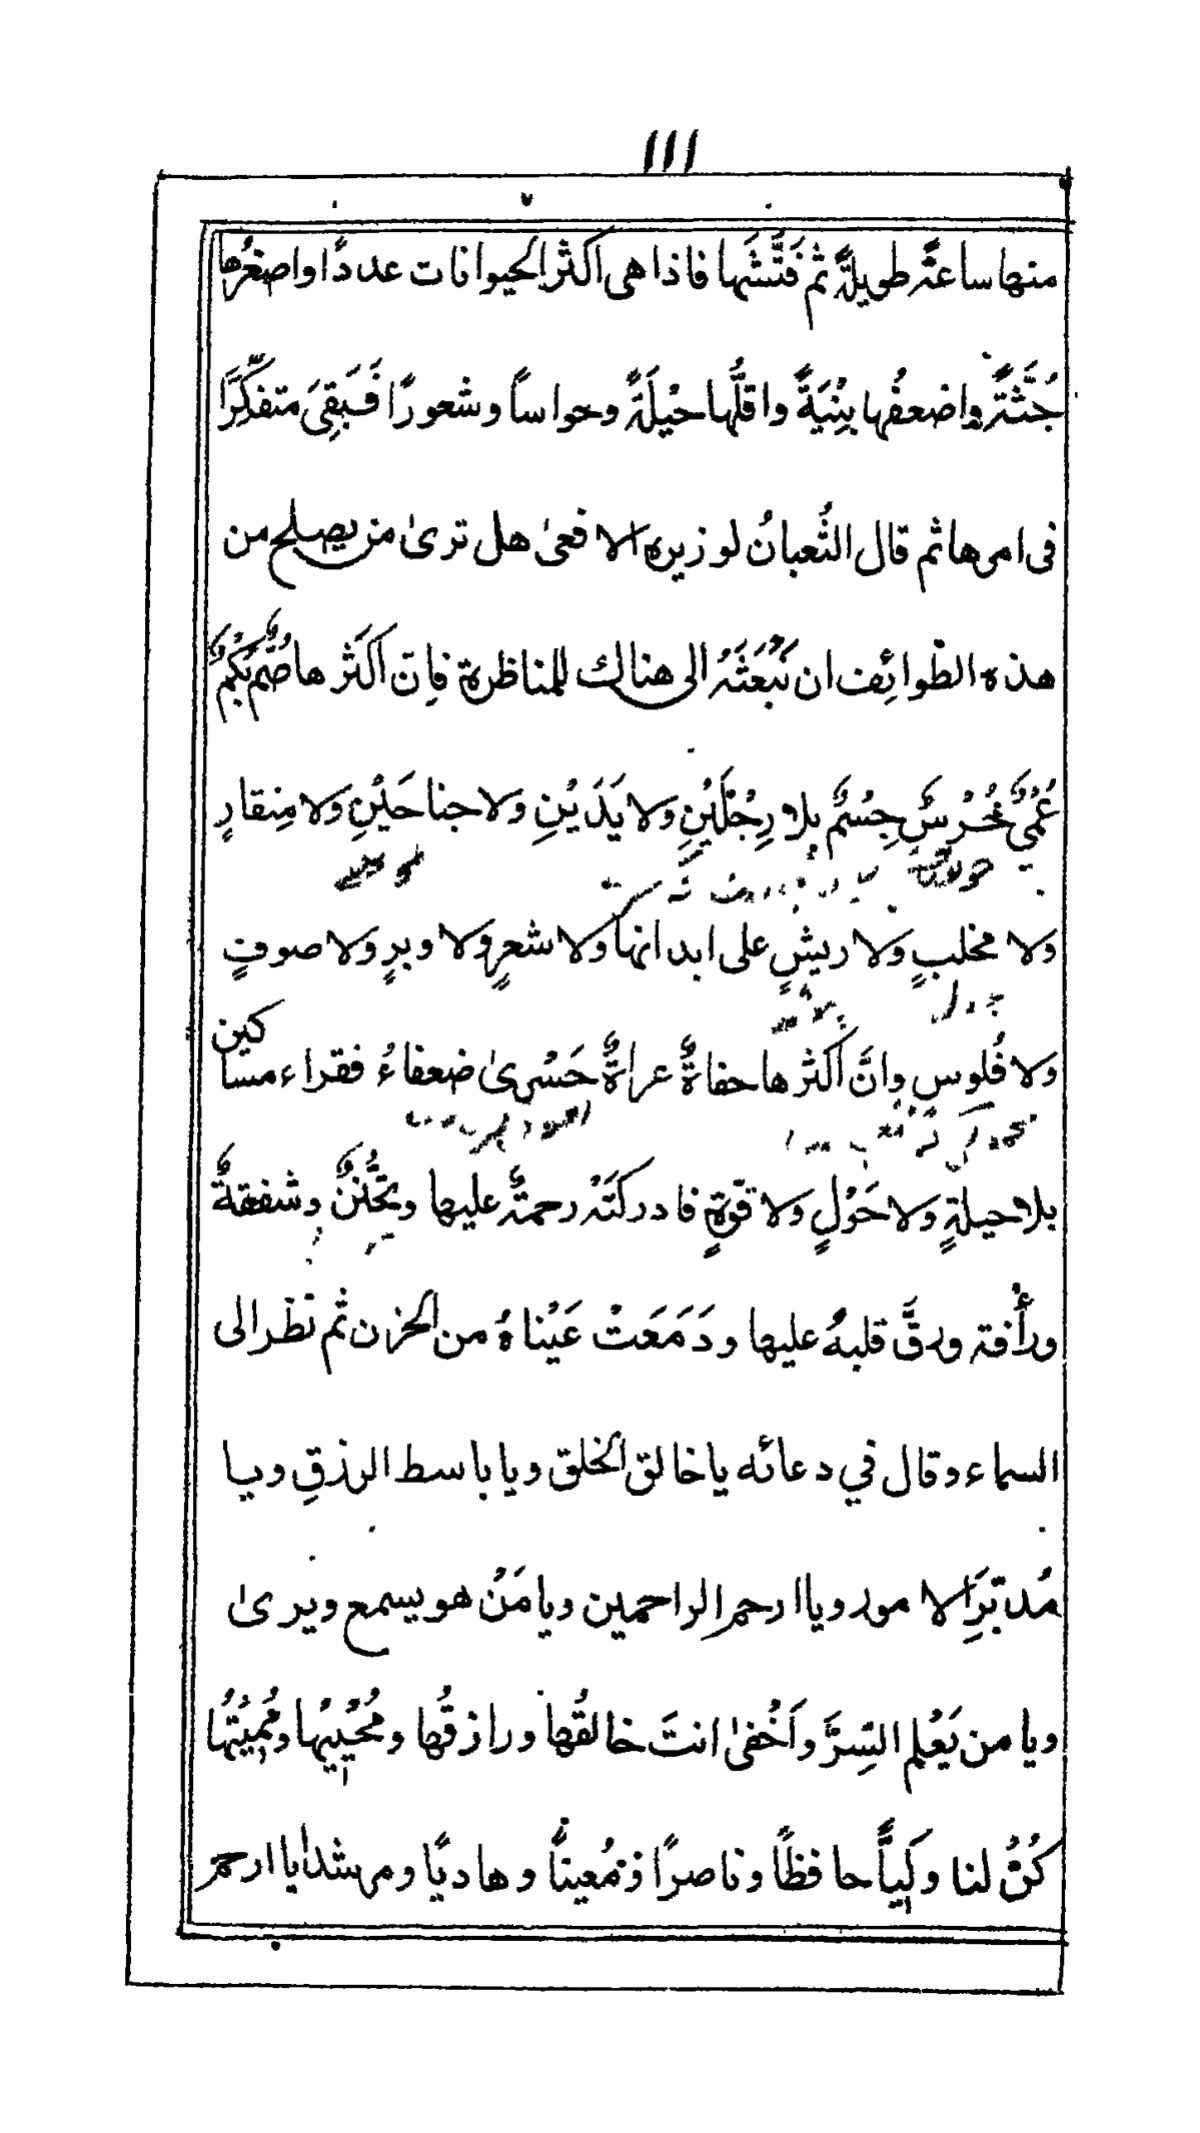 ١١١
منها ساعةً طويلةً ثم فَتَّشَها فاذا هى اكثر الحيوانات عددًا واصغرُها
جُثَّةً واضعفُها بِنْيَةً واقلُّها حِيْلَةً وحواسًا وشعورًا فَبَقِىَ متفكِّرًا
فى امرها ثم قال الثُّعبانُ لوزيره الافعىٰ هل ترىٰ من يصلح من
هذه الطّوائِف ان نَبْعَثَهُ الى هناك للمناظرة فاِنّ اكثَرها صُمٌّ بُكْمٌ
عُمْىٌ خُرْسٌ جِسْمٌ بلا رِجْلَيْنِ ولا يَدَيْنِ ولا جناحَيْنِ ولا مِنقارٍ
ولا مخلبٍ ولا ريشٍ على ابدانها ولا شعرٍ ولا وبرٍ ولا صوفٍ
ولا فُلوس واِنَّ اكثرها حفاةٌ عراةٌ حَسْرىٰ ضعفاءُ فقراء مساكين
بلا حيلةٍ ولا حَوْلٍ ولا قوّةٍ فادركتَهْ رحمةٌ عليها وتحَنُّنٌ وشفقةٌ
ورأفة ورقَّ قلبهُ عليها ودَمَعَتْ عَيْناهُ من الحزن ثم نظر الى
السماء وقال في دعائه يا خالق الخلق ويا باسط الرزقِ ويا
مُدبِّرَ الامور ويا ارحم الراحمين ويا مَنْ هو يسمع ويرىٰ
ويا من يَعْلم السِّرَّ واَخْفىٰ انتَ خالقُها ورازقُها ومُحْيِيْها ومُمِيْتُها
كُنْ لنا وَلِيًّا حافظًا وناصرًا ومُعينًا وهاديًا ومرشدًا يا ارحم